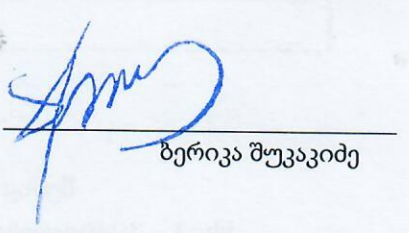 ბერიკა შუკაკიძე